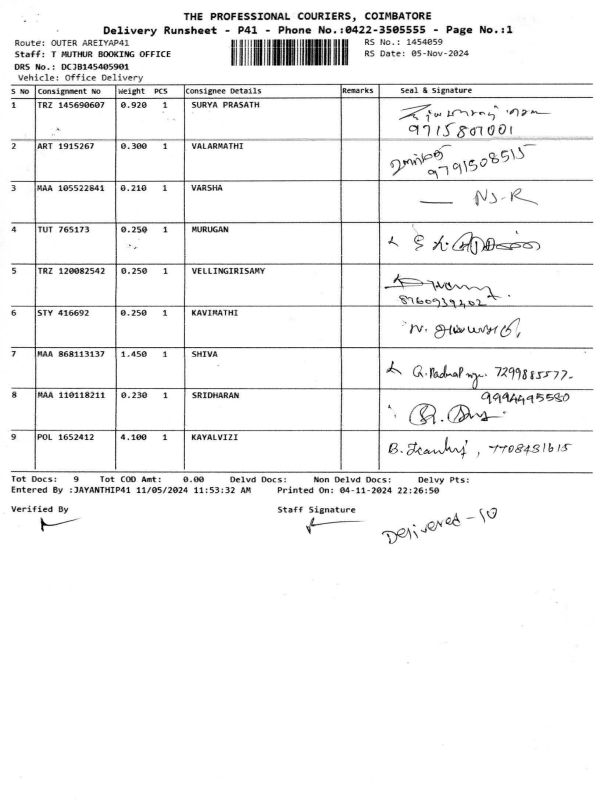 THE PROFESSIONAL COURIERS, COIMBATORE
Delivery Runsheet - P41 - Phone No.:0422-3505555 - Page No.:1
Route: OUTER AREIYAP41 RS No.: 1454059
Staff: T MUTHUR BOOKING OFFICE RS Date: 05-Nov-2024
DRS No.: DCJB145405901
Vehicle: Office Delivery
S No Consignment No Weight PCS Consignee Details Remarks Seal & Signature
1 TRZ 145690607 0.920 1 SURYA PRASATH
9715807001
2 ART 1915267 0.300 1 VALARMATHI
9791508515
3 MAA 105522841 0.210 1 VARSHA
4 TUT 765173 0.250 1 MURUGAN
5 TRZ 120082542 0.250 1 VELLINGIRISAMY
8760939202
6 STY 416692 0.250 1 KAVIMATHI
7 MAA 868113137 1.450 1 SHIVA 7299885577
8 MAA 110118211 0.230 1 SRIDHARAN 9994495580
9 POL 1652412 4.100 1 KAYALVIZI 7708481615
Tot Docs: 9 Tot COD Amt: 0.00 Delvd Docs: Non Delvd Docs: Delvy Pts:
Entered By :JAYANTHIP41 11/05/2024 11:53:32 AM Printed On: 04-11-2024 22:26:50
Verified By Staff Signature
Delivered - 10